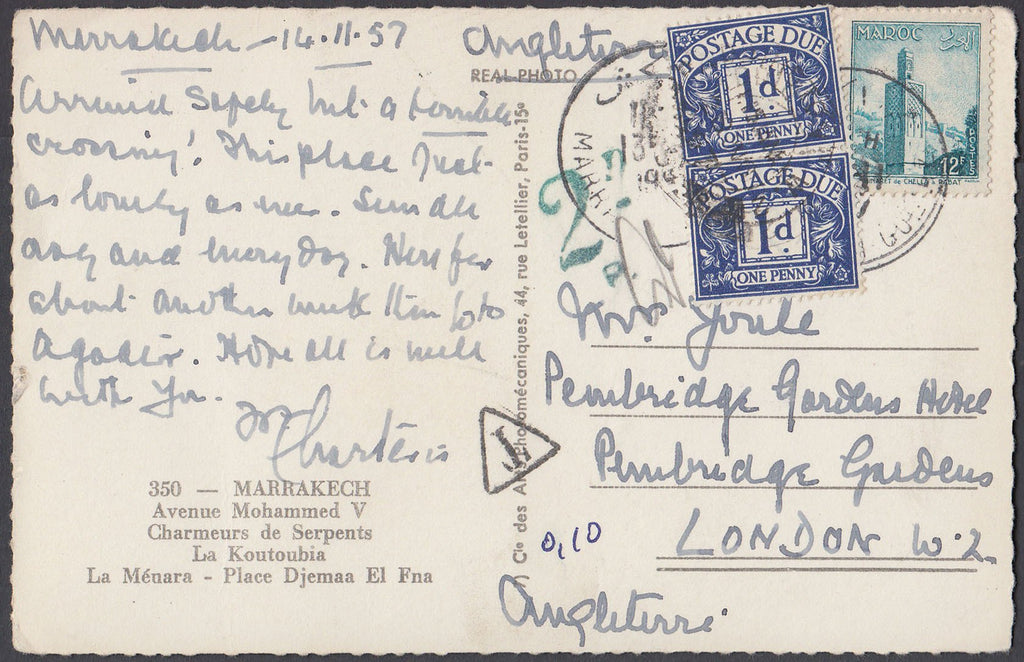 Marrakech - 14.11.57
Arrived safely but a terrible
crossing! This place just
as lovely as ever. Sun all
day and every day. Here for
about another week then go to
Agadir. Hope all is well
with you.
Charteris
350 — MARRAKECH
Avenue Mohammed V
Charmeurs de Serpents
La Koutoubia
La Ménara - Place Djemaa El Fna
Angleterre
REAL PHOTO
Cie des Arts Photomécaniques, 44, rue Letellier, Paris-15e
POSTAGE DUE
1d.
ONE PENNY
POSTAGE DUE
1d.
ONE PENNY
MAROC
المغرب
POSTES
12F
MARRAKECH
2
D.
T
0,10
Joule
Pembridge Gardens Hotel
Pembridge Gardens
LONDON W.2.
Angleterre